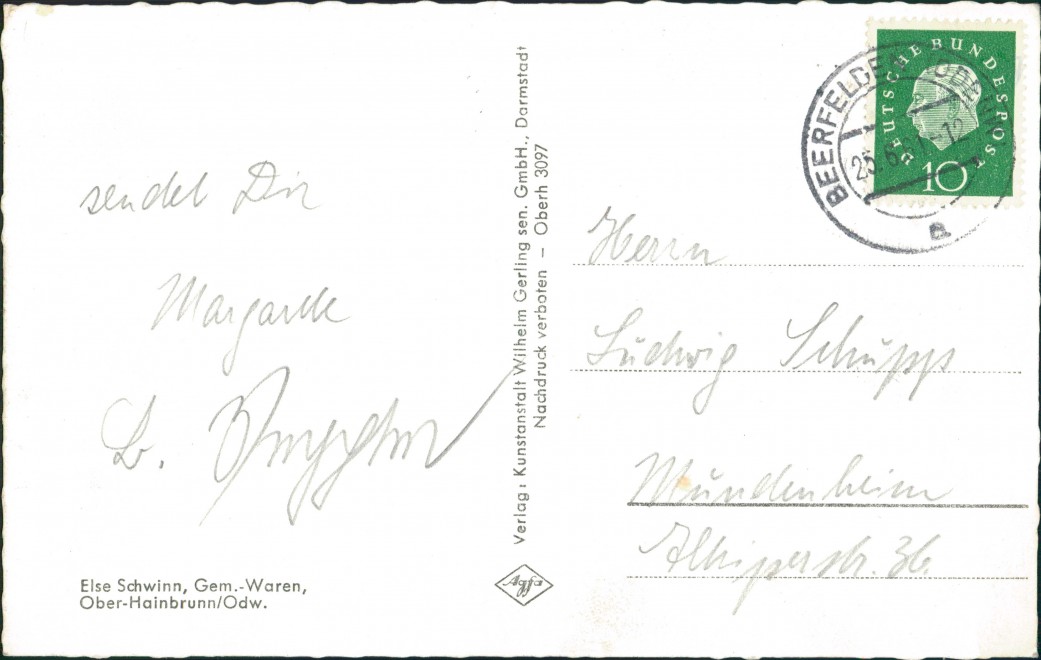 sendet Dir
Margarete
L.
Else Schwinn, Gem.-Waren,
Ober-Hainbrunn/Odw.
Verlag: Kunstanstalt Wilhelm Gerling sen. GmbH., Darmstadt
Nachdruck verboten — Oberh 3097
Agfa
DEUTSCHE BUNDESPOST
10
BEERFELDEN (ODENW)
25.6.61-12
a
Herrn
Ludwig Schupp
Mundenheim
36